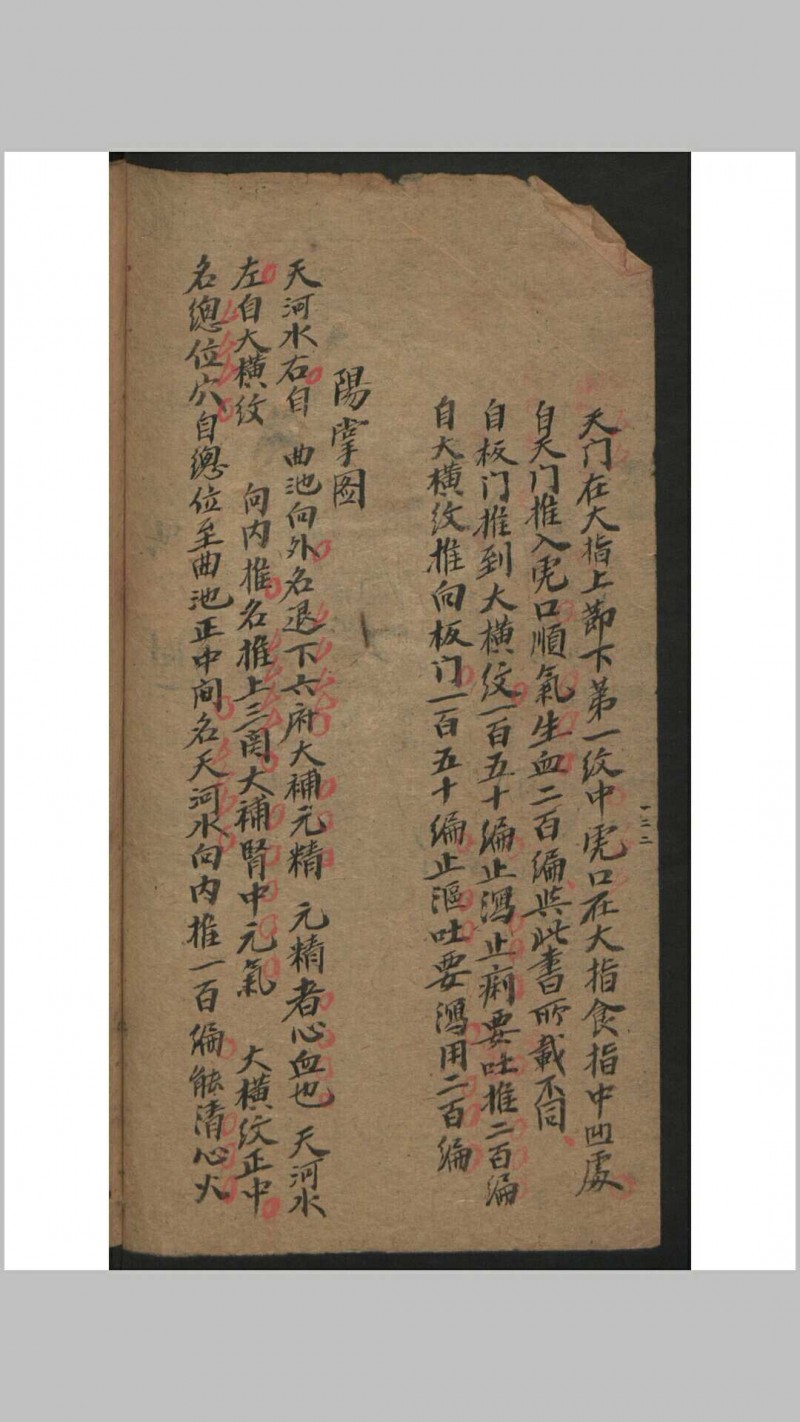 天门在大指上節下第一纹中虎口在大指食指中凹處
自天门推入虎口順氣生血二百编与此書所載不同
自板门推到大横纹一百五十编止瀉止痢要吐推二百编
自大横纹推向板门一百五十编止漚吐要瀉用二百编
陽掌图
天河水右自 曲池向外名退下六府大補元精 元精者心血也 天河水
左自大横纹 向内推名推上三関大補腎中元氣 大横纹正中
名總位穴自總位至曲池正中间名天河水向内推一百编能清心火